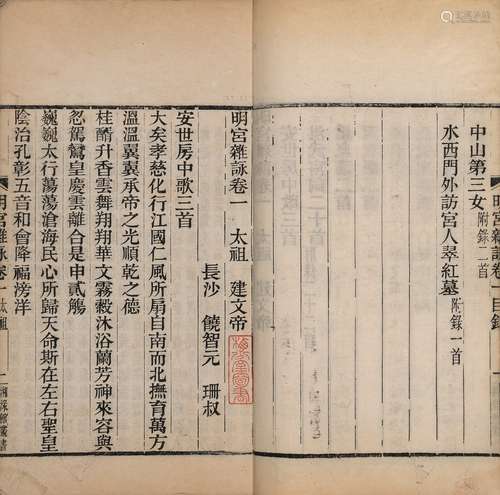 中山第三女 附錄二首
水西門外訪宮人翠紅墓 附錄一首
明宮雜詠卷一 太祖 建文帝
長沙 饒智元 珊叔
安世房中歌三首
大矣孝慈化行江國仁風所扇自南而北撫育萬方
溫溫翼翼承帝之光順乾之德
桂醑升香雲舞翔翔華文霧縠沐浴蘭芳神來容與
忽駕鸞皇慶雲離合是申貳觴
巍巍太行蕩蕩滄海民心所歸天命斯在左右聖皇
陰治孔彰五音和會降福滂洋
明宮雜詠 卷一 太祖